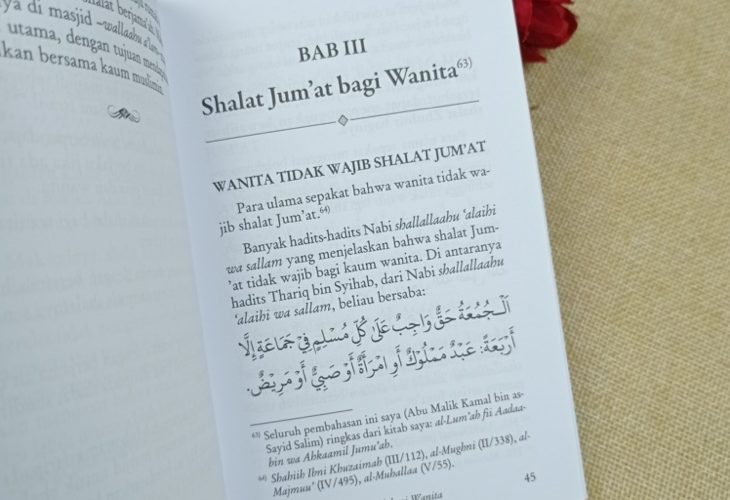 ya di masjid –wallaahu a'lam–
utama, dengan tujuan
kan bersama kaum muslimin.
BAB III
Shalat Jum'at bagi Wanita⁶³⁾
WANITA TIDAK WAJIB SHALAT JUM'AT
Para ulama sepakat bahwa wanita tidak wa-
jib shalat Jum'at.⁶⁴⁾
Banyak hadits-hadits Nabi shallallaahu 'alaihi
wa sallam yang menjelaskan bahwa shalat Jum-
'at tidak wajib bagi kaum wanita. Di antaranya
hadits Thariq bin Syihab, dari Nabi shallallaahu
'alaihi wa sallam, beliau bersaba:
اَلْجُمُعَةُ حَقٌّ وَاجِبٌ عَلَى كُلِّ مُسْلِمٍ فِيْ جَمَاعَةٍ إِلَّا
أَرْبَعَةً: عَبْدٌ مَمْلُوْكٌ أَوِ امْرَأَةٌ أَوْ صَبِيٌّ أَوْ مَرِيْضٌ.
⁶³⁾ Seluruh pembahasan ini saya (Abu Malik Kamal bin as-
Sayid Salim) ringkas dari kitab saya: al-Lum'ah fii Aadaa-
bin wa Ahkaamil Jumu'ah.
⁶⁴⁾ Shahiih Ibni Khuzaimah (III/112), al-Mughni (II/338), al-
Majmuu' (IV/495), al-Muhallaa (V/55).
45
Wanita